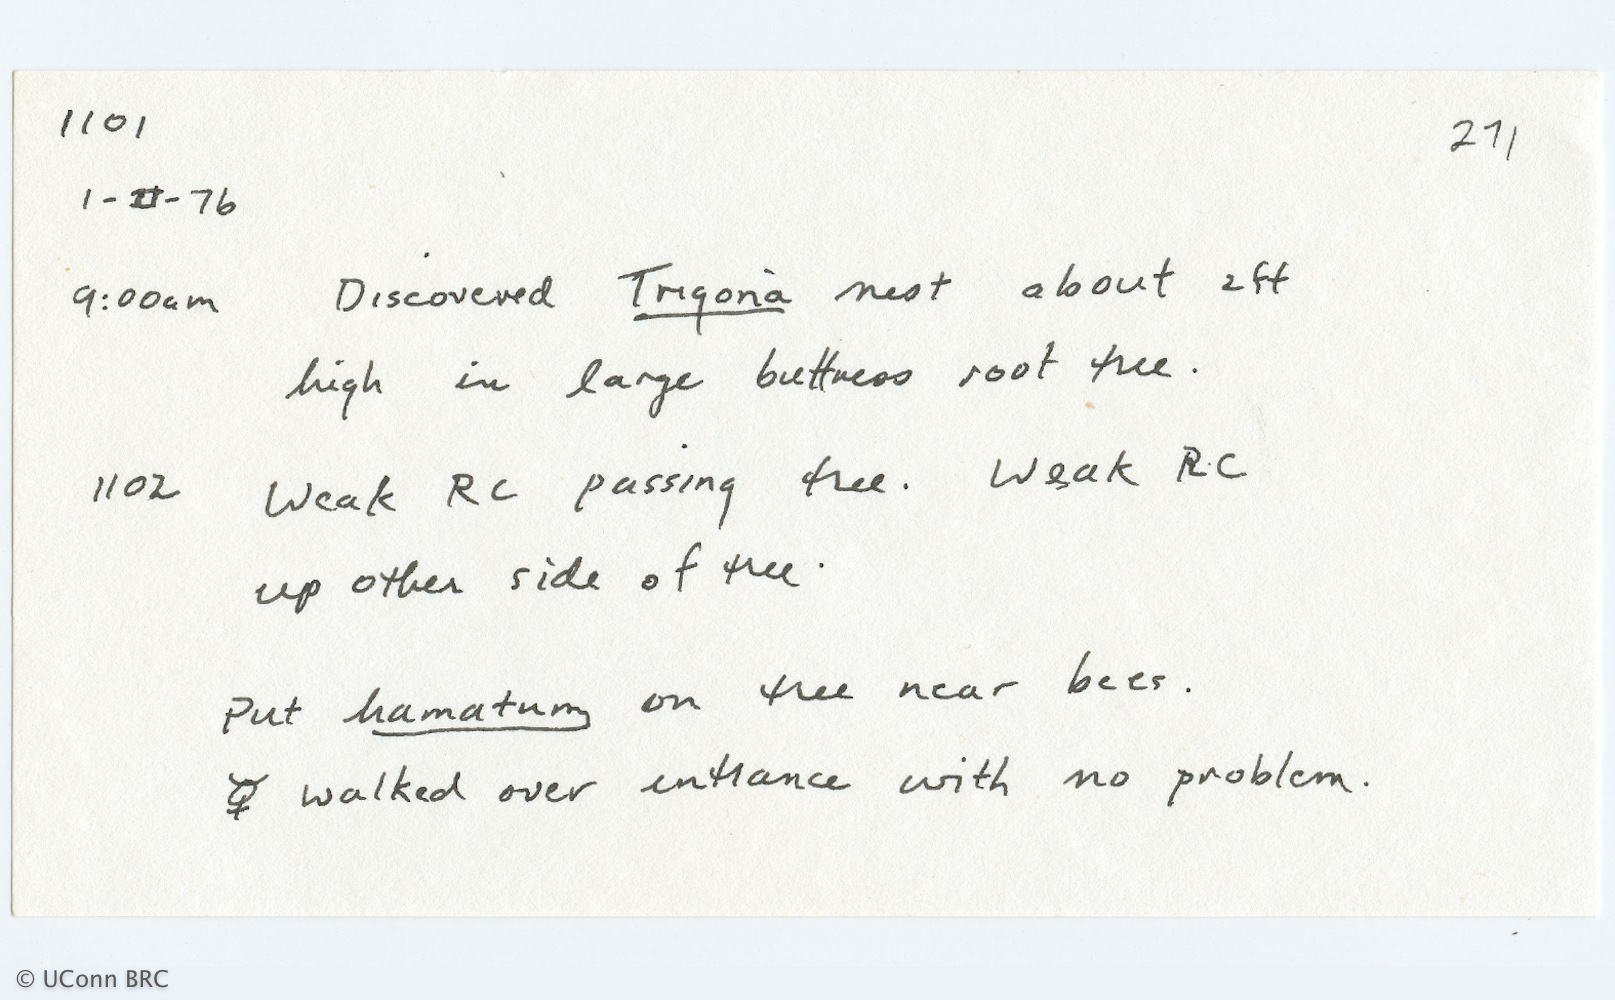 1101 271
1-II-76
9:00am Discovered Trigona nest about 2ft
high in large buttress root tree.
1102 Weak RC passing tree. Weak RC
up other side of tree.
Put hamatum on tree near bees.
☿ walked over entrance with no problem.
© UConn BRC